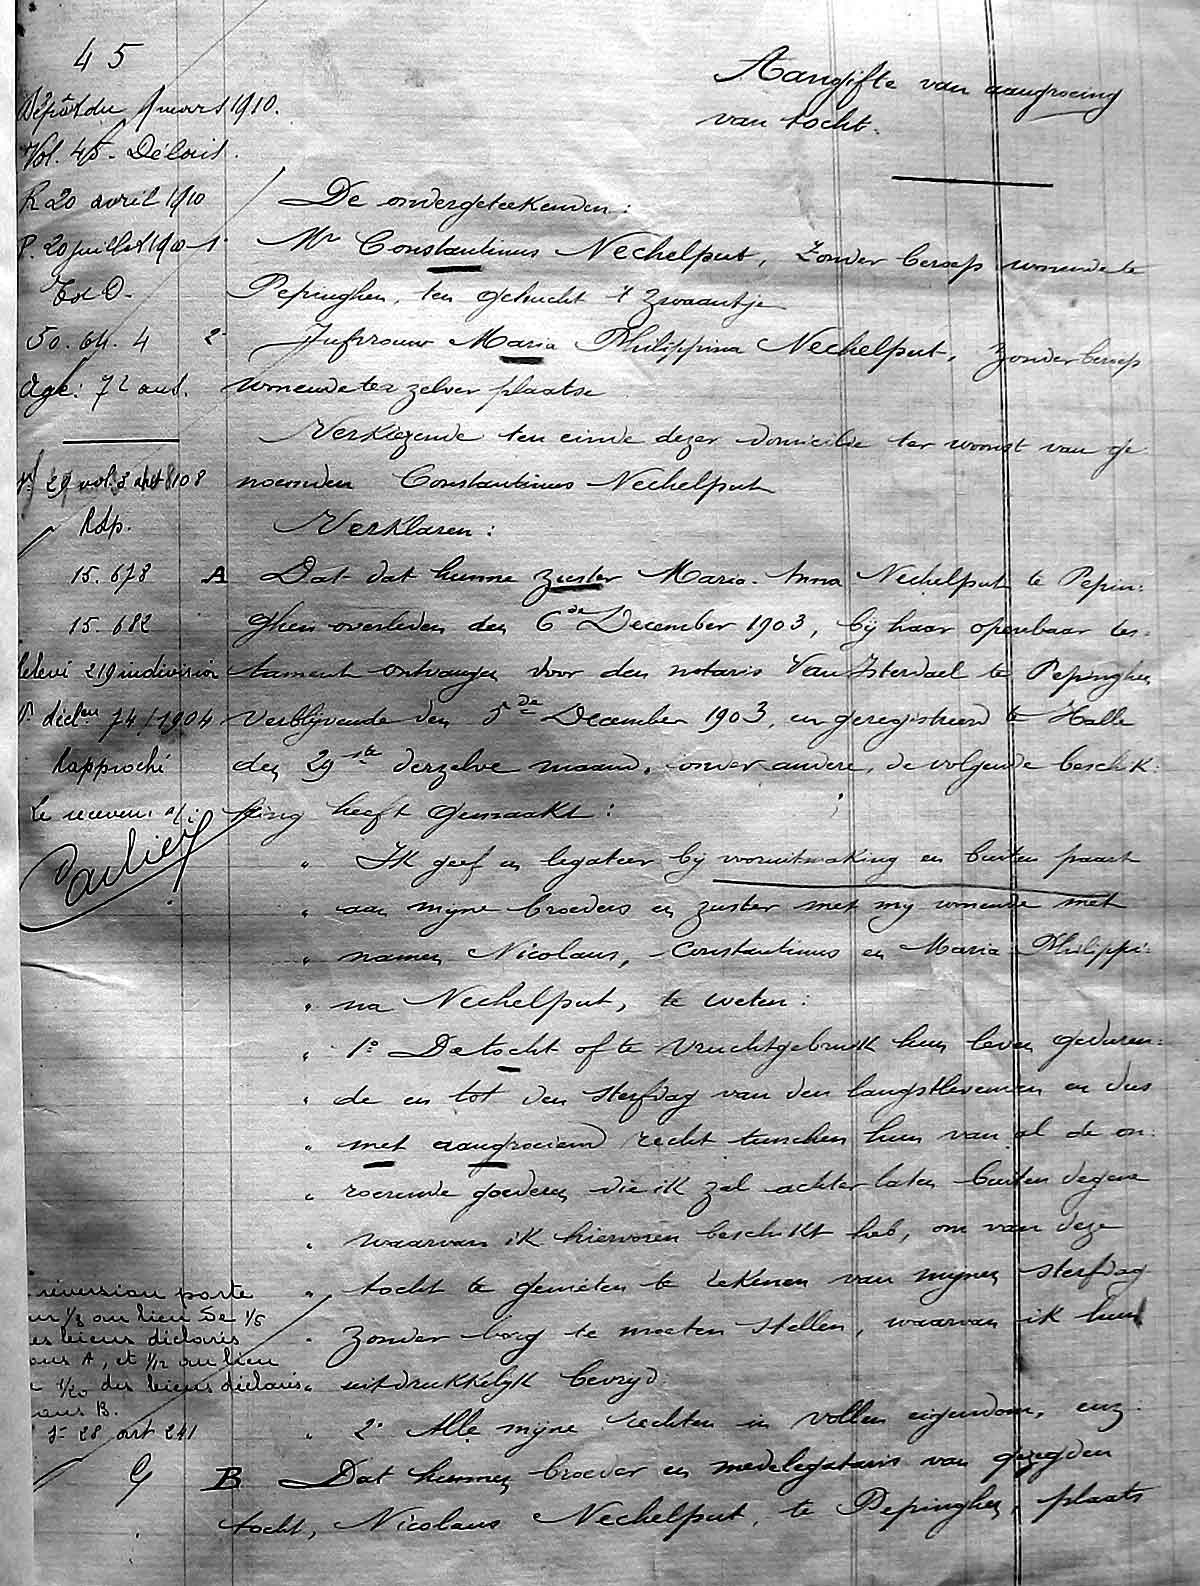 45
Dépôt du 1 mars 1910.
Vol. 45 - Délais.
R 20 avril 1910
P. 20 juillet 1910
E d D.
50. 64. 4
Age: 72 ans.
29 vol. 3 art 8108
Rdp.
15.678
15.682
219 indivision
décl.en 74/1904
Rapproché
Le receveur a/i
reversion porte
1/3 au lieu de 1/5
biens déclarés
A, et 1/12 au lieu
1/20 des biens déclarés
B.
28 art 241
Aangifte van aangroeing
van tocht.
De ondergeteekenden:
1° Mr Constantinus Nechelput, zonder beroep wonende te
Pepinghen, ten gehucht 't Zwaantje
2° Jufvrouw Maria Philippina Nechelput, zonder beroep
wonende ter zelver plaatse
Verkiezende ten einde dezer domicilie ter woonst van ge-
noemden Constantinus Nechelput
Verklaren:
A Dat dat hunne zuster Maria-Anna Nechelput te Pepin-
ghen overleden den 6de December 1903, bij haar openbaar tes-
tament ontvangen door den notaris Van Isterdael te Pepinghen
verblijvende den 5de December 1903, en geregistreerd te Halle
den 29ste derzelve maand, onder andere, de volgende beschik-
king heeft gemaakt:
" Ik geef en legateer bij vooruitmaking en buiten paart
" aan mijne broeders en zuster met mij wonende met
" namen Nicolaus, Constantinus en Maria Philippi-
" na Nechelput, te weten:
" 1° De tocht ofte vruchtgebruik hun leven geduren-
" de en tot den sterfdag van den langstlevenden en dus
" met aangroeiend recht tusschen hun van al de on-
" roerende goederen die ik zal achter laten buiten degene
" waarvan ik hiervoren beschikt heb, om van deze
" tocht te genieten te rekenen van mijnen sterfdag
" zonder borg te moeten stellen, waarvan ik hun
" uitdrukkelijk bevrijd
" 2° Alle mijne rechten in vollen eigendom, enz.
B Dat hunnen broeder en medelegataris van gezegden
tocht, Nicolaus Nechelput, te Pepinghen, plaats